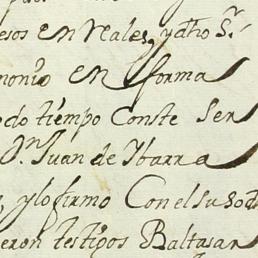 esos en Reales, y dho Sr.
monio en forma
odo tiempo Conste Ser
Dn. Juan de Ybarra
, y lo firmo Con el suso d
eron testigos Baltasar